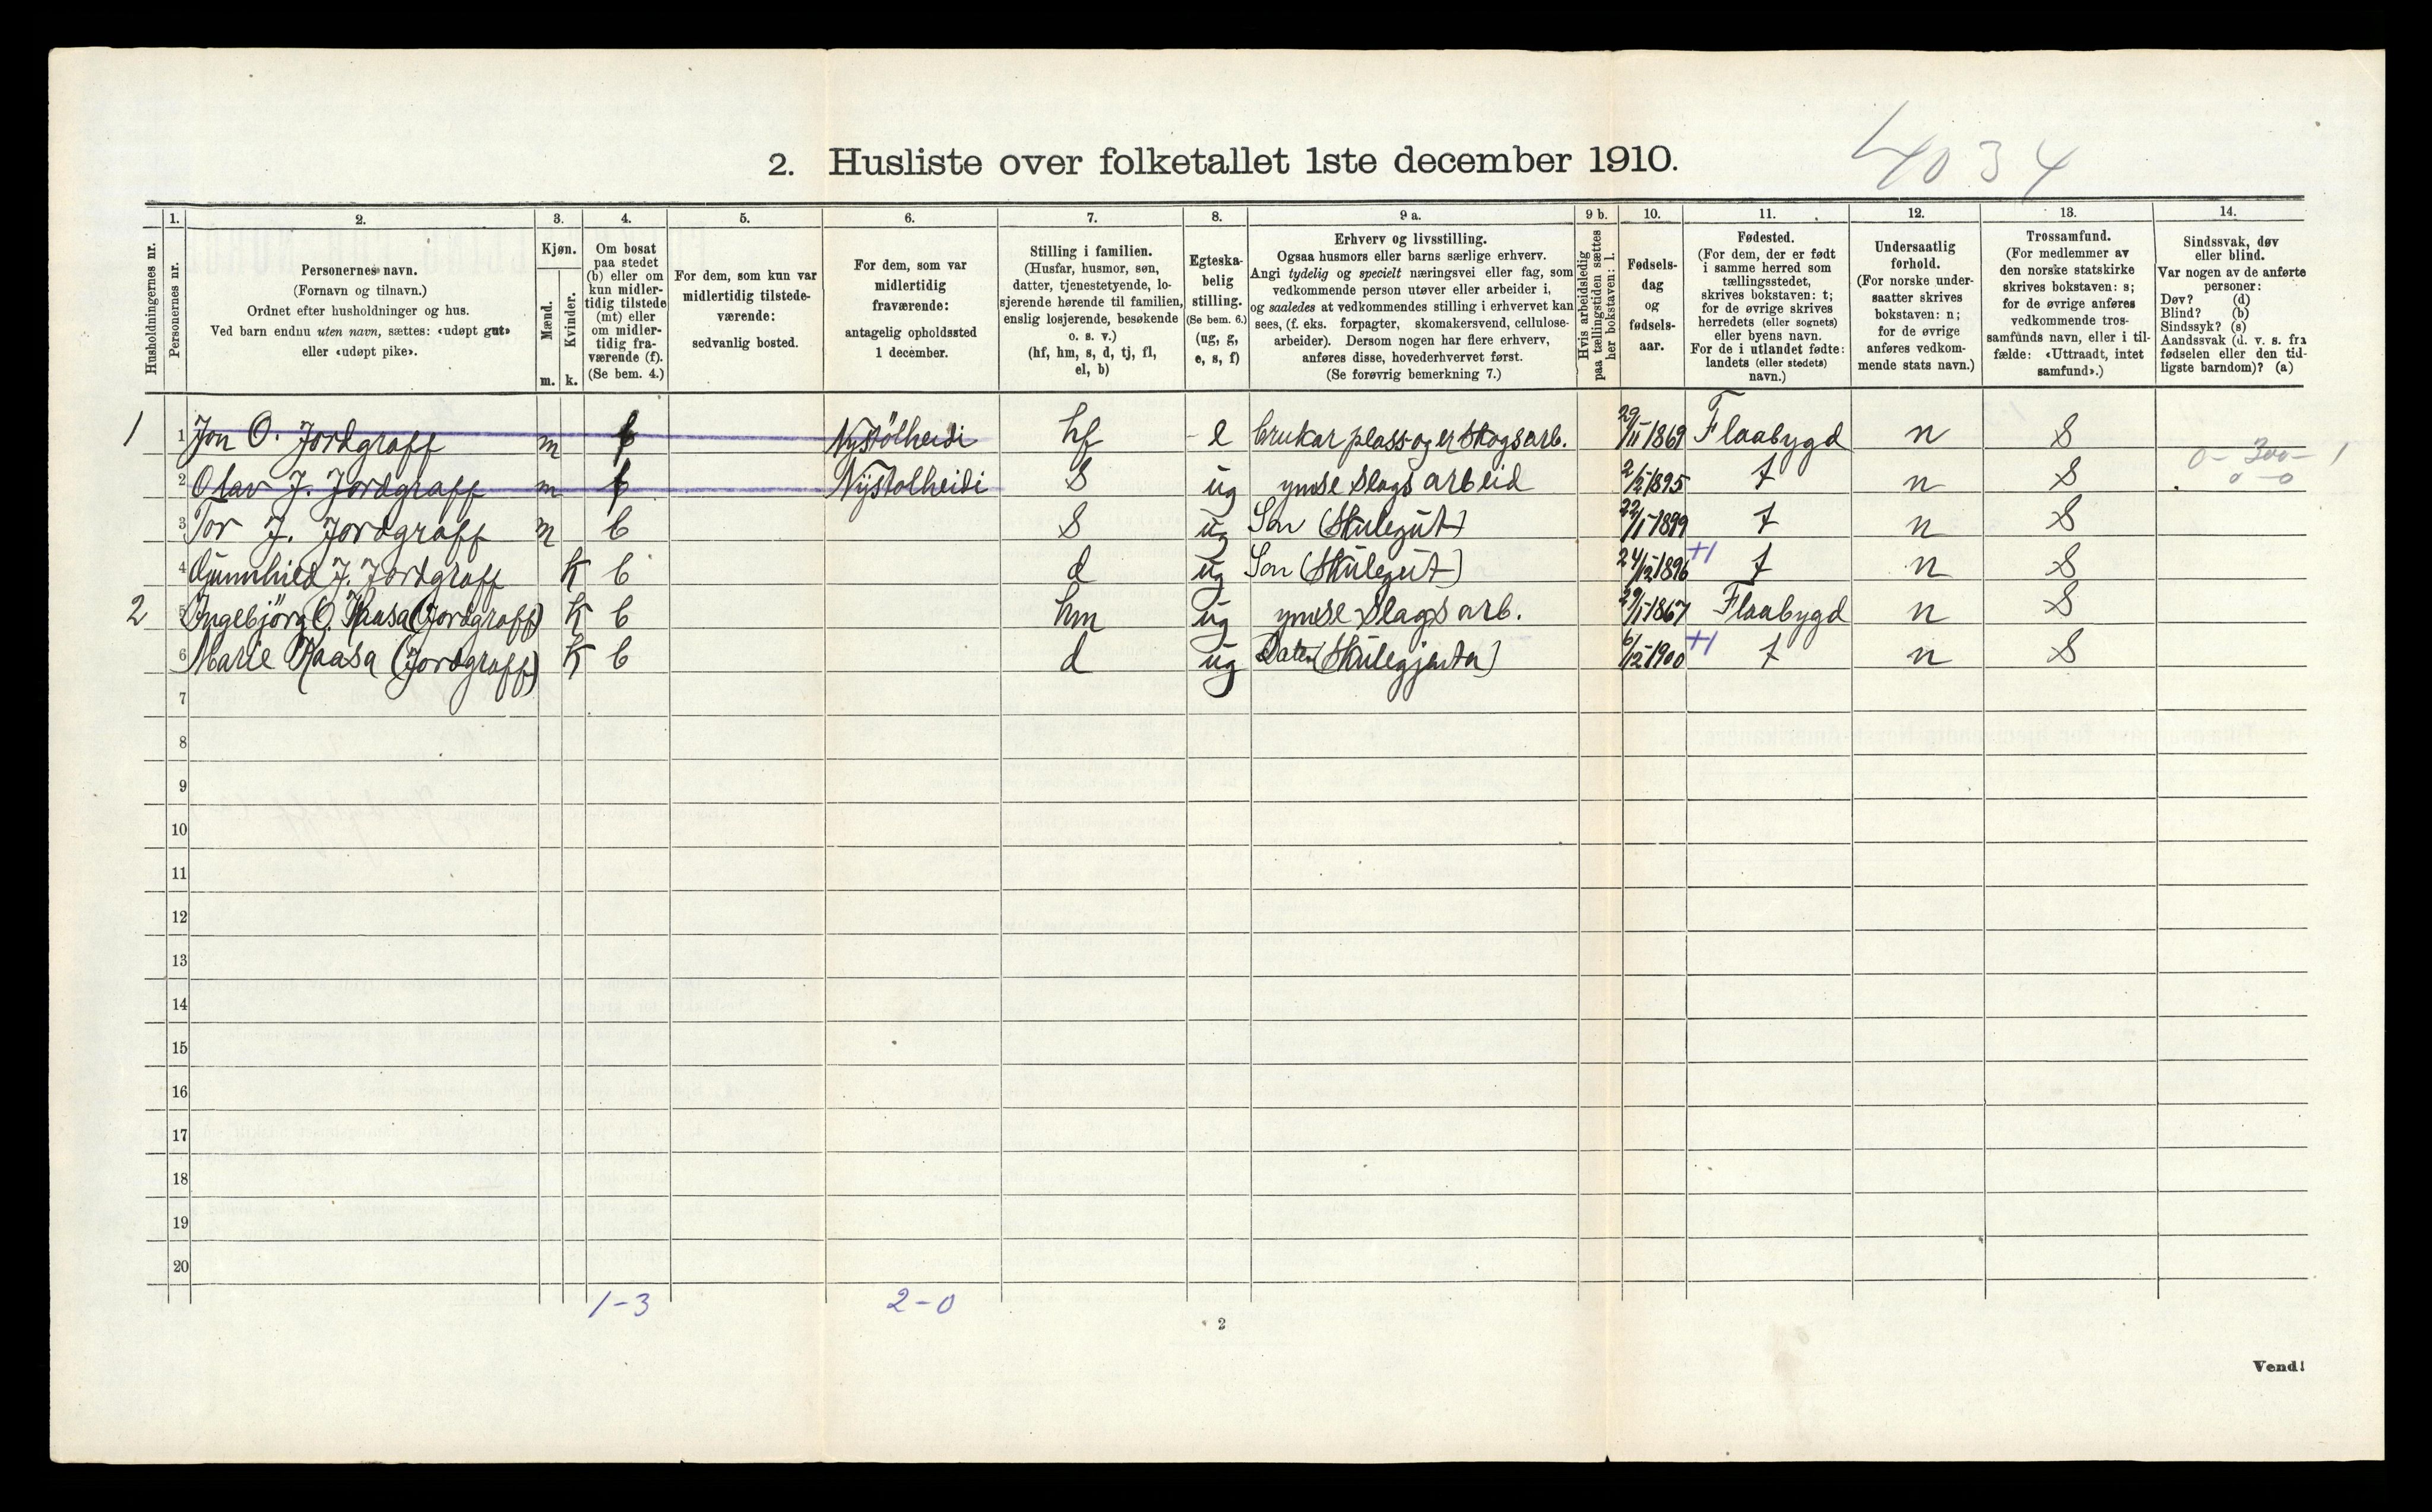 4034
2. Husliste over folketallet 1ste december 1910.
Husholdningernes nr.
1.
Personernes nr.
2.
Personernes navn.
(Fornavn og tilnavn.)
Ordnet efter husholdninger og hus.
Ved barn endnu uten navn, sættes: «udøpt gut»
eller «udøpt pike».
3.
Kjøn.
Mænd.
m.
Kvinder.
k.
4.
Om bosat
paa stedet
(b) eller om
kun midler-
tidig tilstede
(mt) eller
om midler-
tidig fra-
værende (f).
(Se bem. 4.)
5.
For dem, som kun var
midlertidig tilstede-
værende:
sedvanlig bosted.
6.
For dem, som var
midlertidig
fraværende:
antagelig opholdssted
1 december.
7.
Stilling i familien.
(Husfar, husmor, søn,
datter, tjenestetyende, lo-
sjerende hørende til familien,
enslig losjerende, besøkende
o. s. v.)
(hf, hm, s, d, tj, fl,
el, b)
8.
Egteska-
belig
stilling.
(Se bem. 6.)
(ug, g,
e, s, f)
9 a.
Erhverv og livsstilling.
Ogsaa husmors eller barns særlige erhverv.
Angi tydelig og specielt næringsvei eller fag, som
vedkommende person utøver eller arbeider i,
og saaledes at vedkommendes stilling i erhvervet kan
sees, (f. eks. forpagter, skomakersvend, cellulose-
arbeider). Dersom nogen har flere erhverv,
anføres disse, hovederhvervet først.
(Se forøvrig bemerkning 7.)
9 b.
Hvis arbeidsledig
paa tællingstiden sættes
her bokstaven: l.
10.
Fødsels-
dag
og
fødsels-
aar.
11.
Fødested.
(For dem, der er født
i samme herred som
tællingsstedet,
skrives bokstaven: t;
for de øvrige skrives
herredets (eller sognets)
eller byens navn.
For de i utlandet fødte:
landets (eller stedets)
navn.)
12.
Undersaatlig
forhold.
(For norske under-
saatter skrives
bokstaven: n;
for de øvrige
anføres vedkom-
mende stats navn.)
13.
Trossamfund.
(For medlemmer av
den norske statskirke
skrives bokstaven: s;
for de øvrige anføres
vedkommende tros-
samfunds navn, eller i til-
fælde: «Uttraadt, intet
samfund».)
14.
Sindssvak, døv
eller blind.
Var nogen av de anførte
personer:
Døv? (d)
Blind? (b)
Sindssyk? (s)
Aandssvak (d. v. s. fra
fødselen eller den tid-
ligste barndom)? (a)
1 1 Jon O. Jordgraff m f Nystölheidi hf e brukar plass og er skogsarb. 29/11 1869 Flaabygd n S
2 Olav J. Jordgraff m f Nystolheidi S ug ymse slags arbeid 1895 t n S
3 Tor J. Jordgraff m b S ug Son (Skulegut) 22/1 1899 t n S
4 Gunnhild J. Jordgraff K b d ug Son (Skulegut) 24/12 1896 t n S
2 5 Ingebjörg O. Kaasa (Jordgraff) K b hm ug ymse slags arb. 29/1 1867 Flaabygd n S
6 Marie Kaasa (Jordgraff) K b d ug (Skulegjenta) 6/12 1900 t n S
7
8
9
10
11
12
13
14
15
16
17
18
19
20
1-3 2-0
2
Vend!